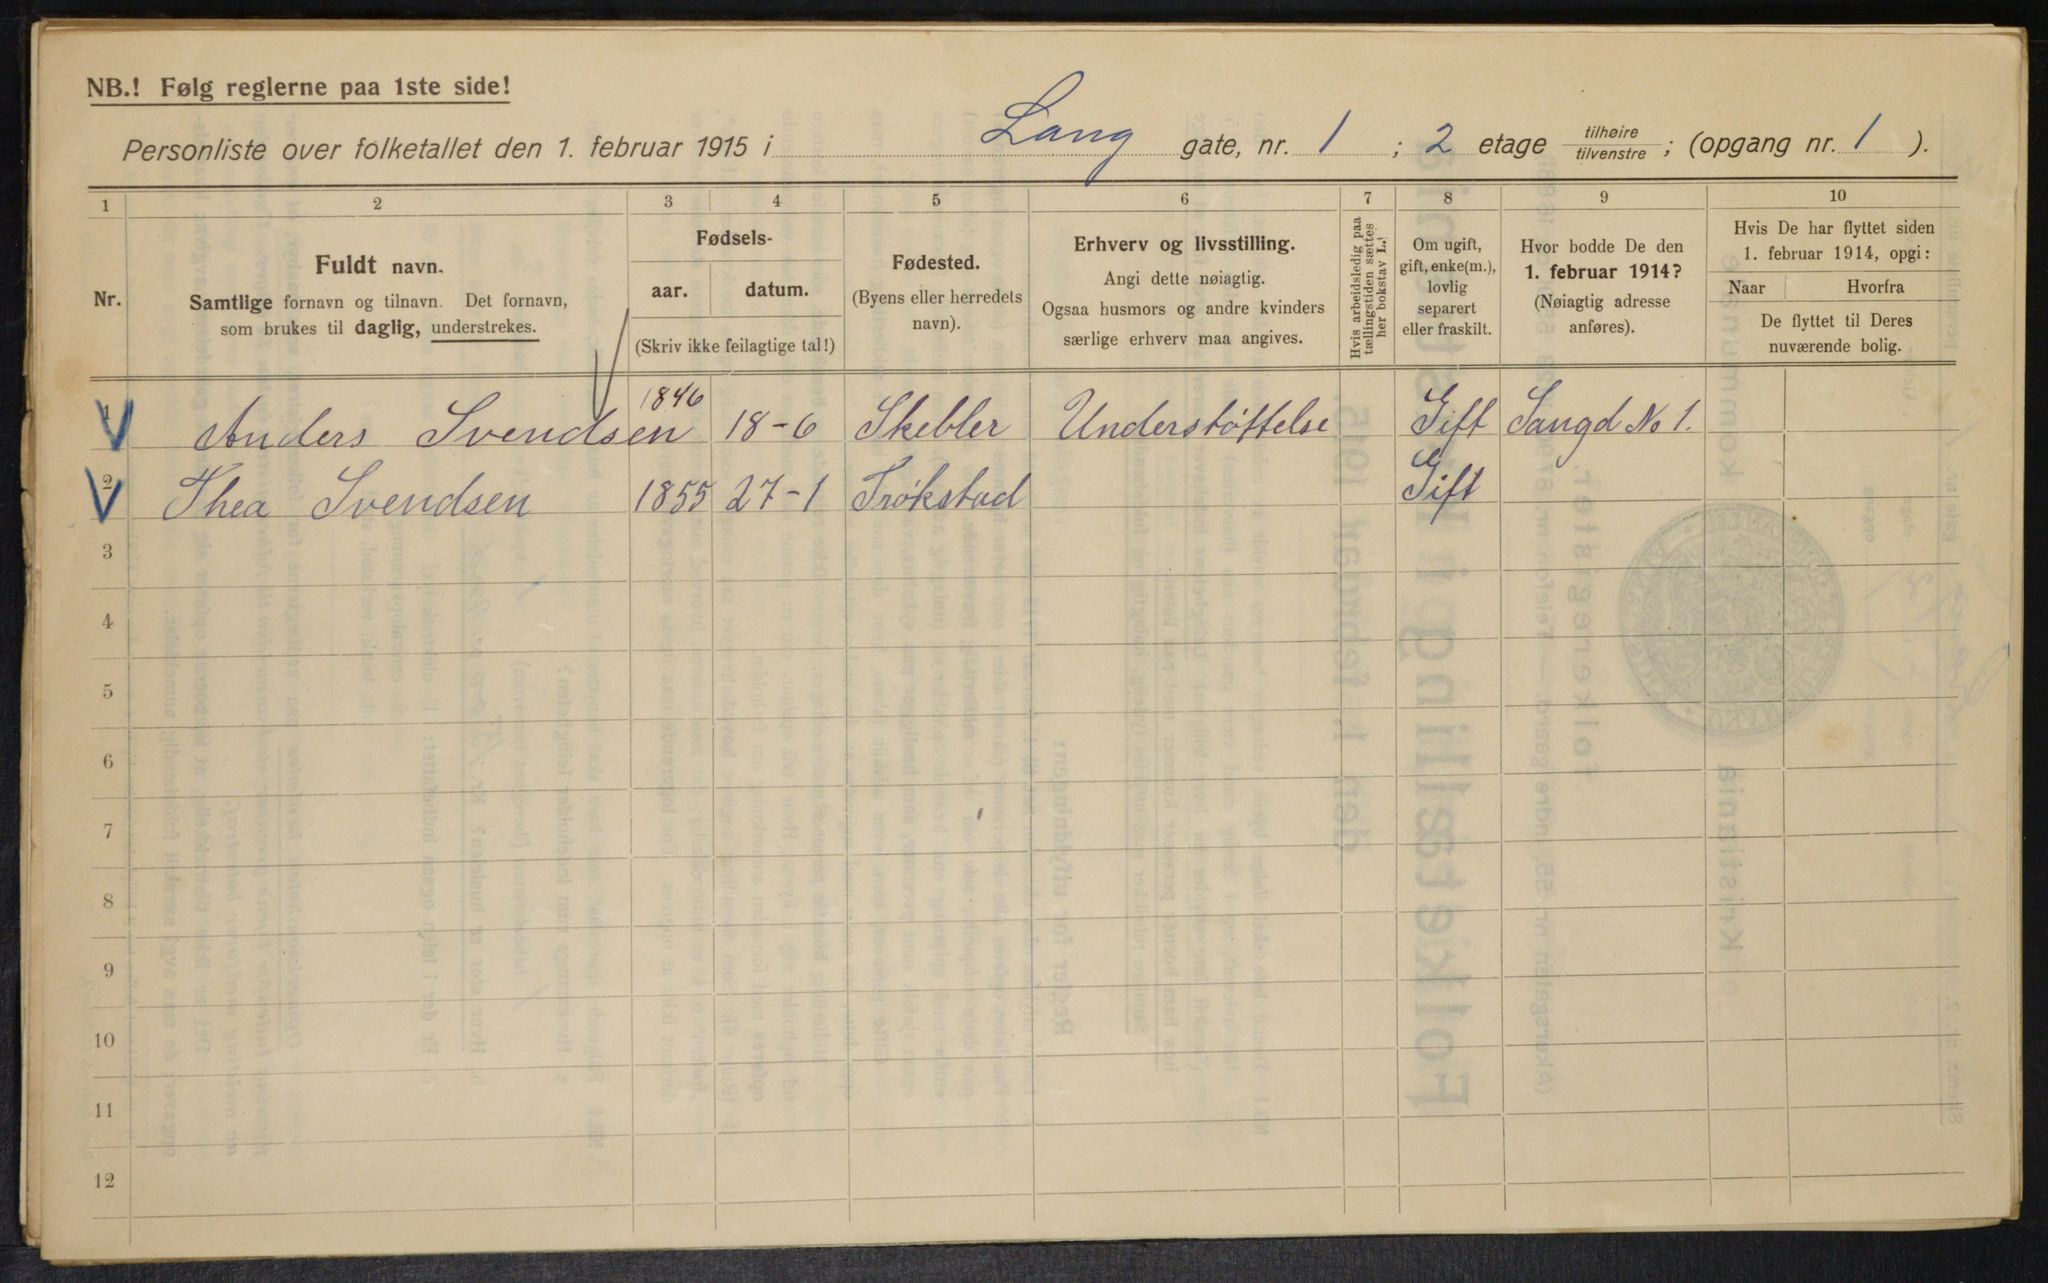 NB.! Følg reglerne paa 1ste side!
Personliste over folketallet den 1. februar 1915 i Lang gate, nr. 1 ; 2 etage tilhøire tilvenstre ; (opgang nr. 1 ).
1 2 3 4 5 6 7 8 9 10
Nr.
Fuldt navn.
Samtlige fornavn og tilnavn. Det fornavn,
som brukes til daglig, understrekes.
Fødsels-
aar. datum.
(Skriv ikke feilagtige tal!)
Fødested.
(Byens eller herredets
navn).
Erhverv og livsstilling.
Angi dette nøiagtig.
Ogsaa husmors og andre kvinders
særlige erhverv maa angives.
Hvis arbeidsledig paa
tællingstiden sættes
her bokstav L.!
Om ugift,
gift, enke(m.),
lovlig
separert
eller fraskilt.
Hvor bodde De den
1. februar 1914?
(Nøiagtig adresse
anføres).
Hvis De har flyttet siden
1. februar 1914, opgi:
Naar Hvorfra
De flyttet til Deres
nuværende bolig.
1 Anders Svendsen 1846 18-6 Skebler Understøttelse Gift Langd No 1.
2 Thea Svendsen 1855 27-1 Trøkstad Gift
3
4
5
6
7
8
9
10
11
12